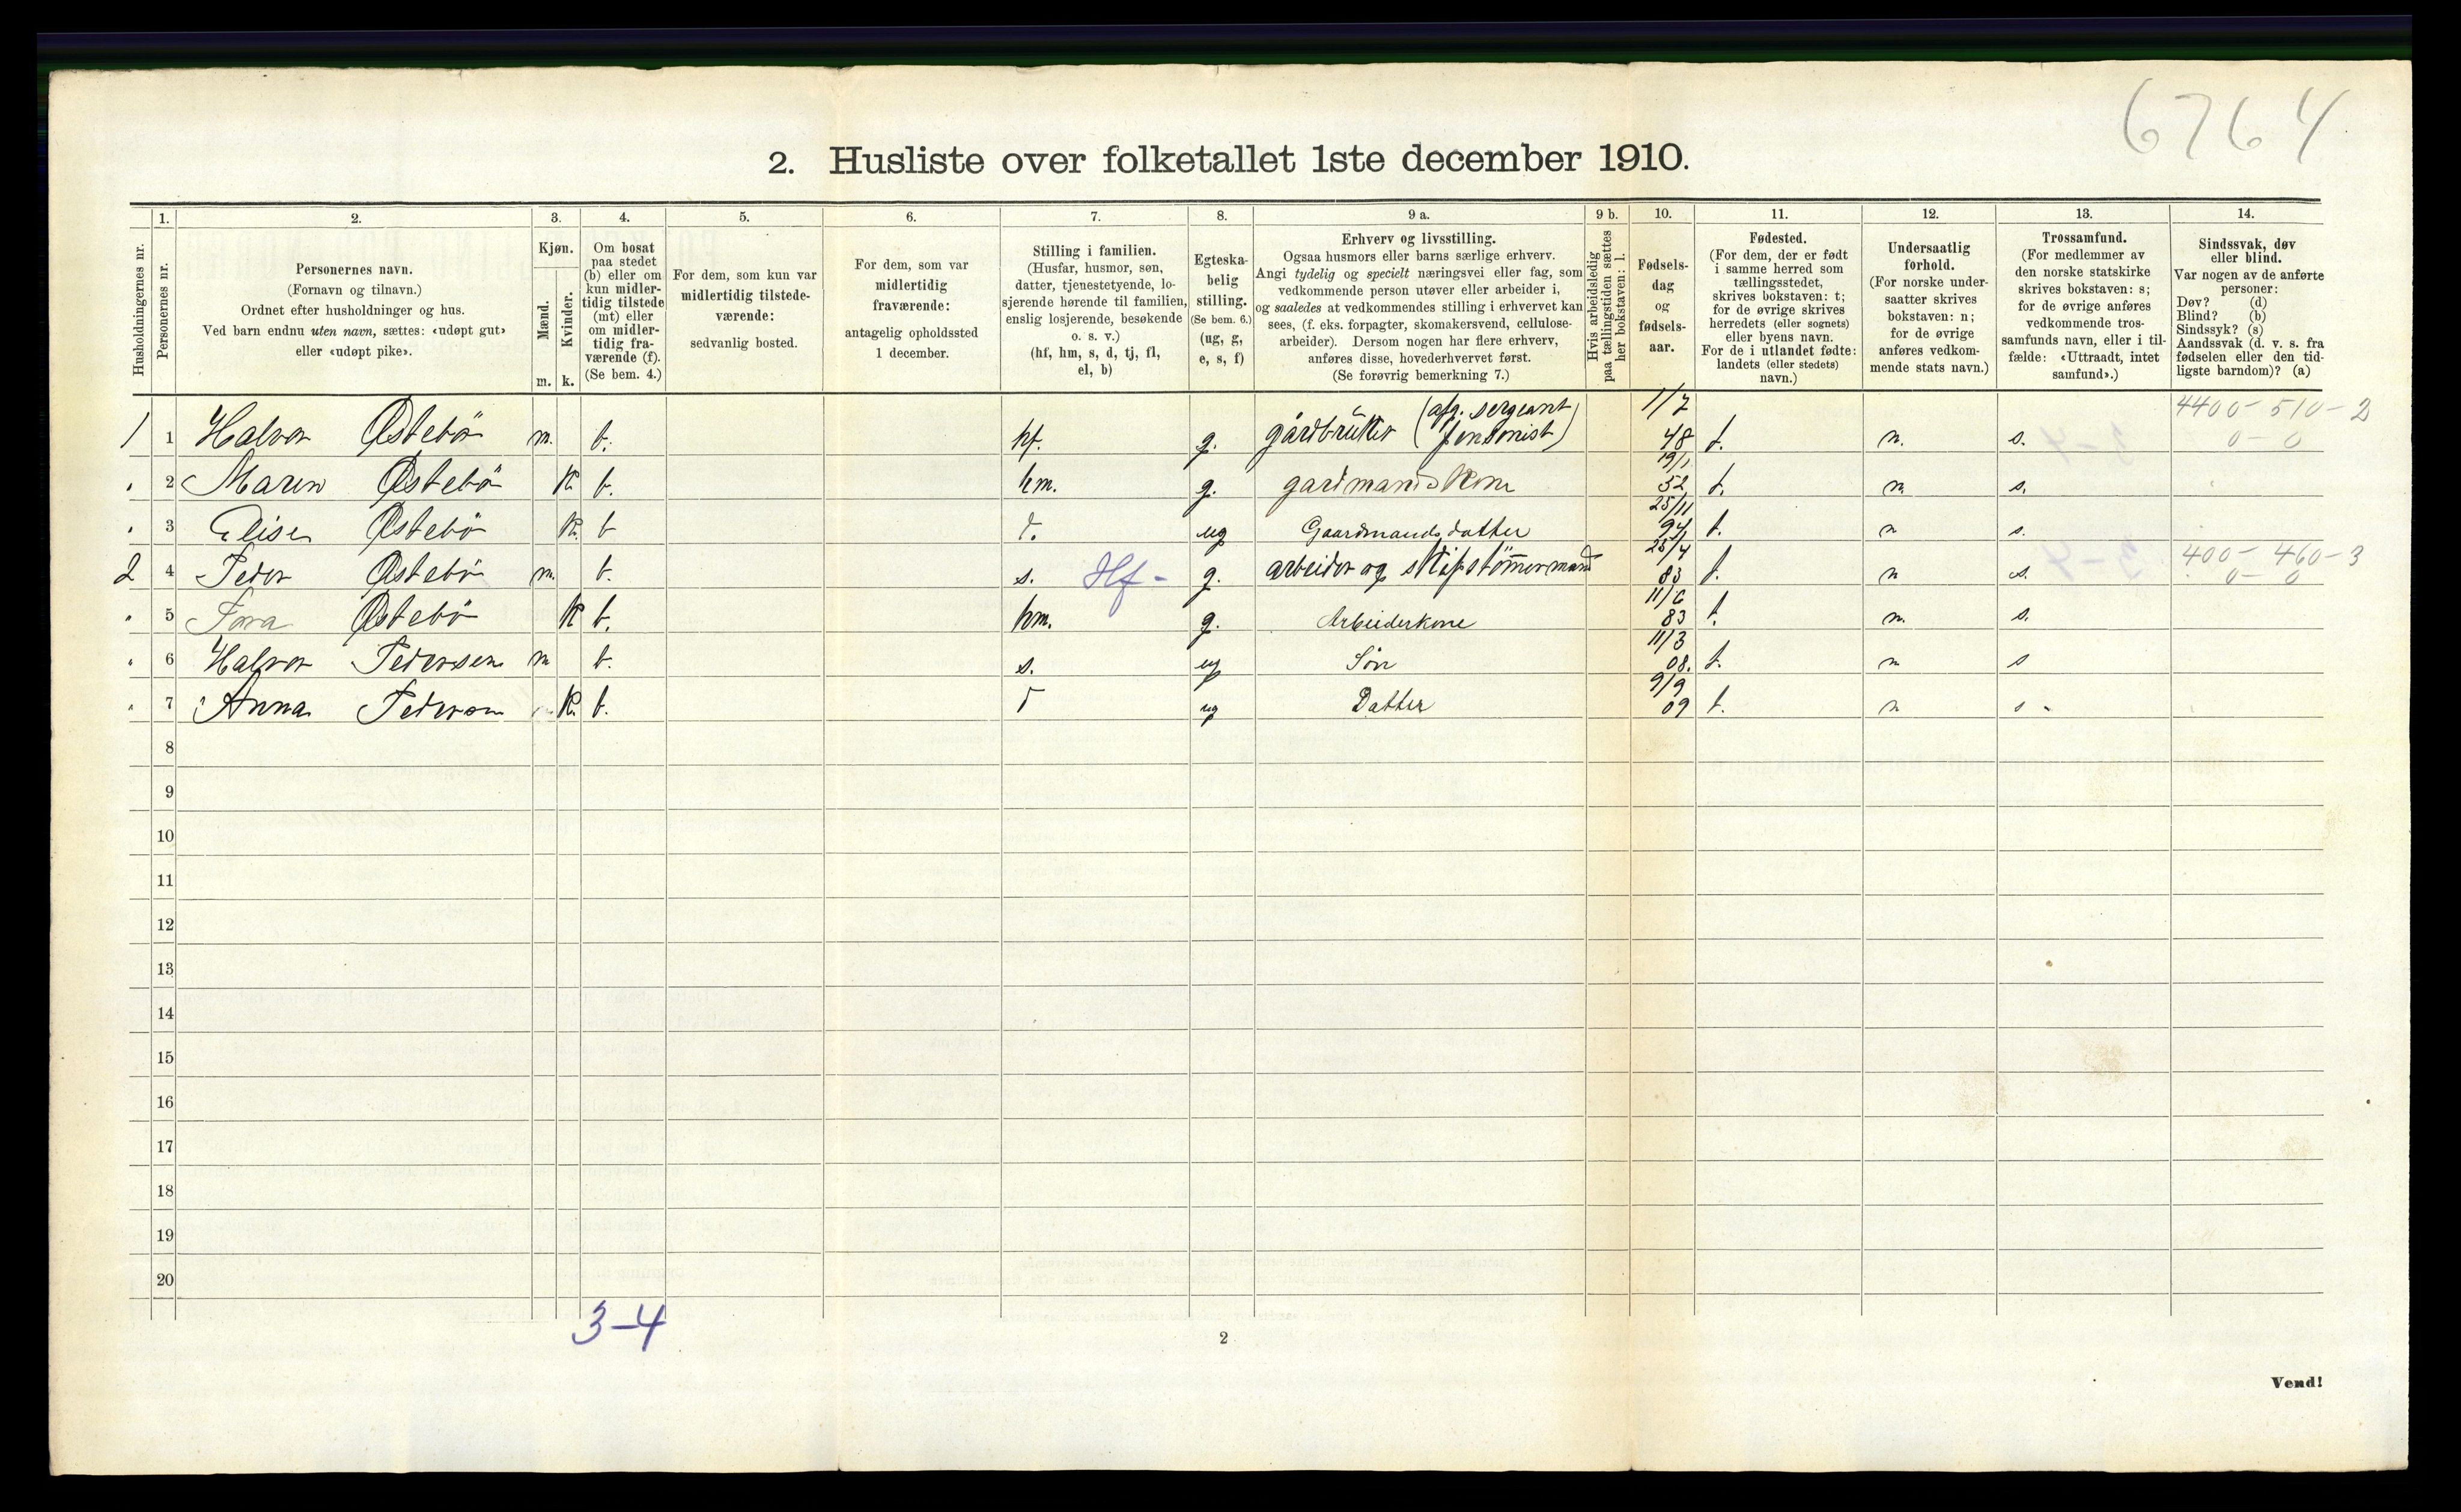 6764
2. Husliste over folketallet 1ste december 1910.
Husholdningernes nr.
1.
Personernes nr.
2.
Personernes navn.
(Fornavn og tilnavn.)
Ordnet efter husholdninger og hus.
Ved barn endnu uten navn, sættes: «udøpt gut»
eller «udøpt pike».
3.
Kjøn.
Mænd.
Kvinder.
m. k.
4.
Om bosat
paa stedet
(b) eller om
kun midler-
tidig tilstede
(mt) eller
om midler-
tidig fra-
værende (f).
(Se bem. 4.)
5.
For dem, som kun var
midlertidig tilstede-
værende:
sedvanlig bosted.
6.
For dem, som var
midlertidig
fraværende:
antagelig opholdssted
1 december.
7.
Stilling i familien.
(Husfar, husmor, søn,
datter, tjenestetyende, lo-
sjerende hørende til familien,
enslig losjerende, besøkende
o. s. v.)
(hf, hm, s, d, tj, fl,
el, b)
8.
Egteska-
belig
stilling.
(Se bem. 6.)
(ug, g,
e, s, f)
9 a.
Erhverv og livsstilling.
Ogsaa husmors eller barns særlige erhverv.
Angi tydelig og specielt næringsvei eller fag, som
vedkommende person utøver eller arbeider i,
og saaledes at vedkommendes stilling i erhvervet kan
sees, (f. eks. forpagter, skomakersvend, cellulose-
arbeider). Dersom nogen har flere erhverv,
anføres disse, hovederhvervet først.
(Se forøvrig bemerkning 7.)
9 b.
Hvis arbeidsledig
paa tællingstiden sættes
her bokstaven: l.
10.
Fødsels-
dag
og
fødsels-
aar.
11.
Fødested.
(For dem, der er født
i samme herred som
tællingsstedet,
skrives bokstaven: t;
for de øvrige skrives
herredets (eller sognets)
eller byens navn.
For de i utlandet fødte:
landets (eller stedets)
navn.)
12.
Undersaatlig
forhold.
(For norske under-
saatter skrives
bokstaven: n;
for de øvrige
anføres vedkom-
mende stats navn.)
13.
Trossamfund.
(For medlemmer av
den norske statskirke
skrives bokstaven: s;
for de øvrige anføres
vedkommende tros-
samfunds navn, eller i til-
fælde: «Uttraadt, intet
samfund».)
14.
Sindssvak, døv
eller blind.
Var nogen av de anførte
personer:
Døv? (d)
Blind? (b)
Sindssyk? (s)
Aandssvak (d. v. s. fra
fødselen eller den tid-
ligste barndom)? (a)
1 1 Halvor Østebö m. b. hf. g. gårdbrüker (afg. sergeant pensonist) 1/7 48 t. n. s. 4400 - 510 - 2
0 - 0
2 Maren Østebö K b. hm. g. gardmands Kone 19/1 52 t. n s.
3 Elise Østebö K. b d. ug Gaardmandsdatter 25/11 94 t. n s.
2 4 Peder Østebö m. b. s. Hf - g. arbeider og skipstömmermand 25/4 83 t. n s. 400 - 460 - 3
0 - 0
5 Tora Østebö K b. hm. g. Arbeiderkone 11/6 83 t. n. s.
6 Halvor Pedersen m b. s. ug Sön 11/3 08. t. n s
7 Anna Pedersen K. b. d ug Datter 9/9 09 t. n s
8
9
10
11
12
13
14
15
16
17
18
19
20
3-4
2
Vend!